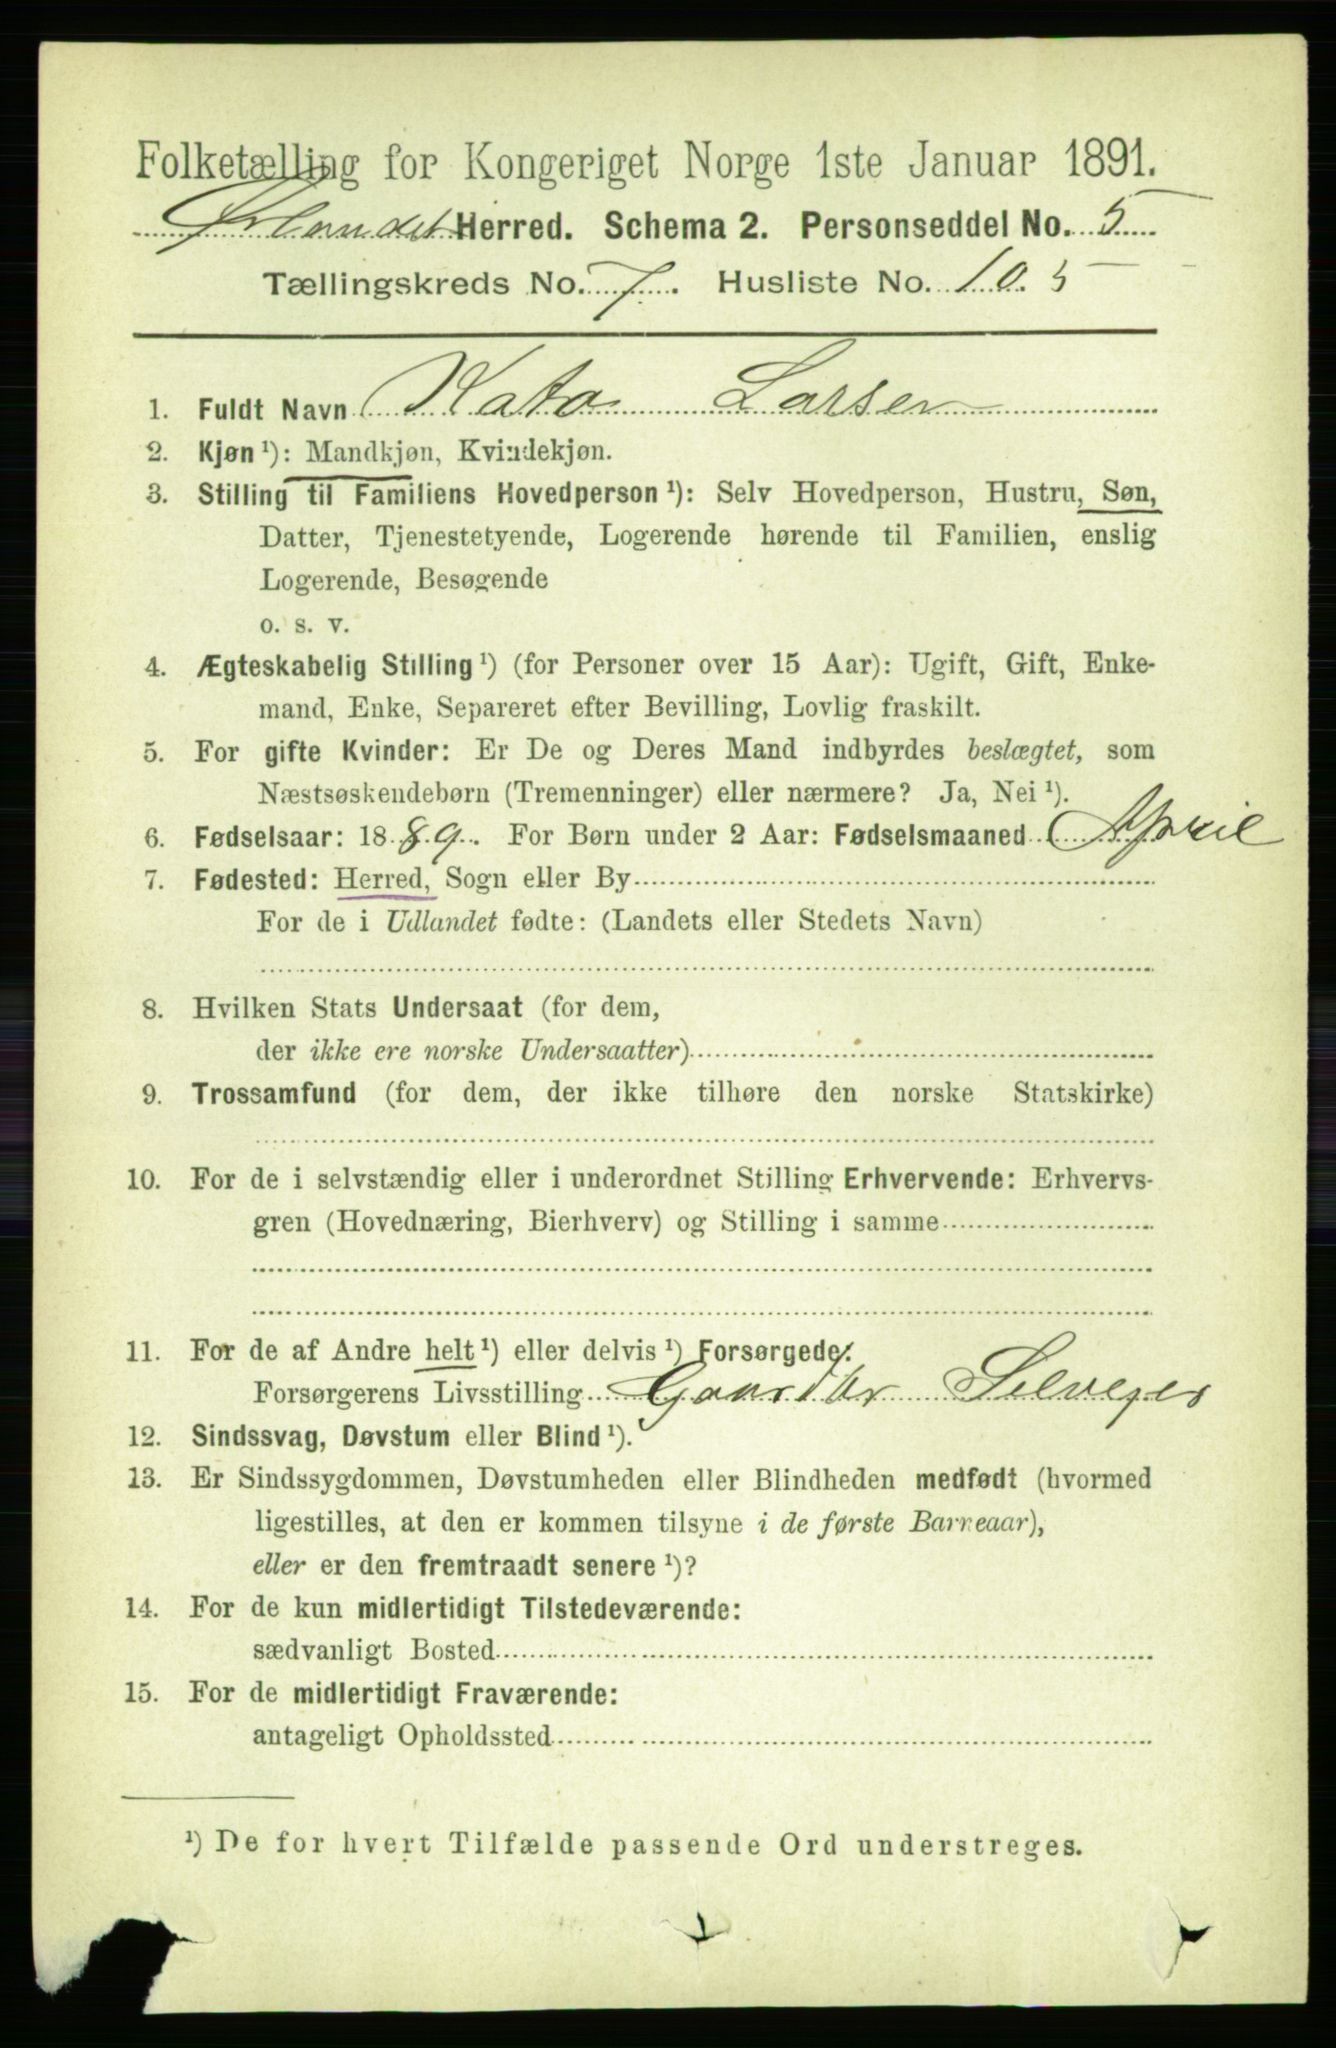 Folketælling for Kongeriget Norge 1ste Januar 1891.
Ørlandet Herred. Schema 2. Personseddel No. 5
Tællingskreds No. 7. Husliste No. 105
1. Fuldt Navn Kato Larsen
2. Kjøn ¹): Mandkjøn, Kvindekjøn.
3. Stilling til Familiens Hovedperson ¹): Selv Hovedperson, Hustru, Søn,
Datter, Tjenestetyende, Logerende hørende til Familien, enslig
Logerende, Besøgende
o. s. v.
4. Ægteskabelig Stilling ¹) (for Personer over 15 Aar): Ugift, Gift, Enke-
mand, Enke, Separeret efter Bevilling, Lovlig fraskilt.
5. For gifte Kvinder: Er De og Deres Mand indbyrdes beslægtet, som
Næstsøskendebørn (Tremenninger) eller nærmere? Ja, Nei ¹).
6. Fødselsaar: 1889. For Børn under 2 Aar: Fødselsmaaned April
7. Fødested: Herred, Sogn eller By
For de i Udlandet fødte: (Landets eller Stedets Navn)
8. Hvilken Stats Undersaat (for dem,
der ikke ere norske Undersaatter)
9. Trossamfund (for dem, der ikke tilhøre den norske Statskirke)
10. For de i selvstændig eller i underordnet Stilling Erhvervende: Erhvervs-
gren (Hovednæring, Bierhverv) og Stilling i samme
11. For de af Andre helt ¹) eller delvis ¹) Forsørgede:
Forsørgerens Livsstilling Gaardbr Selveier
12. Sindssvag, Døvstum eller Blind ¹).
13. Er Sindssygdommen, Døvstumheden eller Blindheden medfødt (hvormed
ligestilles, at den er kommen tilsyne i de første Barneaar),
eller er den fremtraadt senere ¹)?
14. For de kun midlertidigt Tilstedeværende:
sædvanligt Bosted
15. For de midlertidigt Fraværende:
antageligt Opholdssted
¹) De for hvert Tilfælde passende Ord understreges.